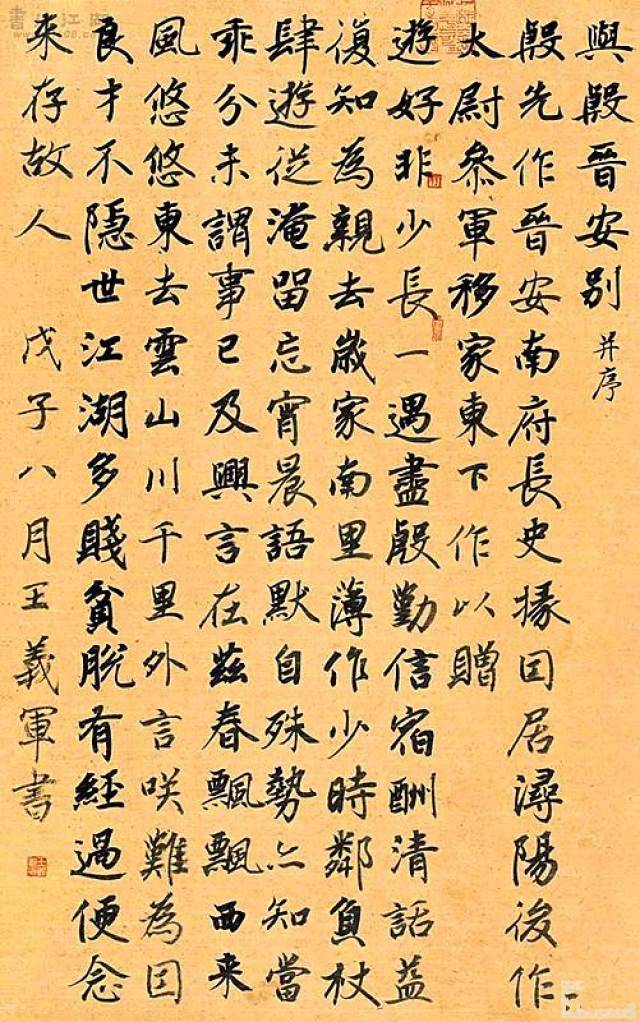 與殷晉安別 并序
殷先作晉安南府長史掾囙居潯陽後作
太尉叅軍移家東下作以贈
遊好非少長一遇盡殷勤信宿酬清話益
復知為親去歲家南里薄作少時鄰負杖
肆遊從淹留忘宵晨語默自殊勢亦知當
乖分未謂事已及興言在茲春飄飄西来
風悠悠東去雲山川千里外言咲難為囙
良才不隱世江湖多賤貧脫有經過便念
来存故人 戊子八月王義軍書